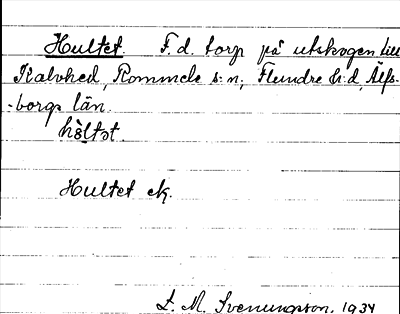 Hultet. F. d. torp på utskogen till
Kalvhed, Rommele s:n, Flundre h:d, Älfs-
-borgs län.
hùltət
Hultet ek.
L. M. Svenungsson. 1934